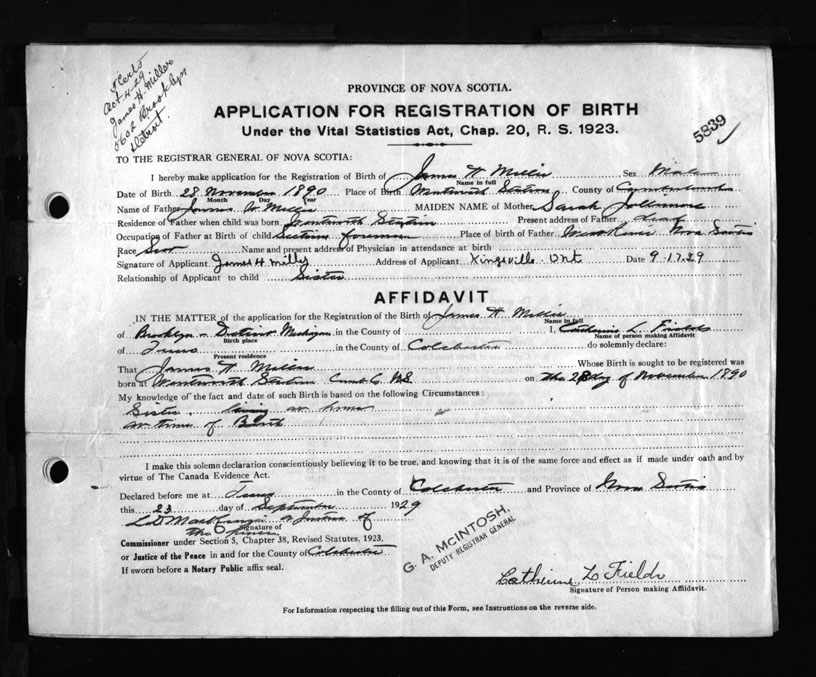 Certs
Oct 4. 29
James H. Miller
5602 Brooklyn
Detroit.
PROVINCE OF NOVA SCOTIA.
APPLICATION FOR REGISTRATION OF BIRTH
Under the Vital Statistics Act, Chap. 20, R. S. 1923.
5839
TO THE REGISTRAR GENERAL OF NOVA SCOTIA:
I hereby make application for the Registration of Birth of James H Miller Sex Male
Name in full
Date of Birth 28 November 1890 Place of Birth Wentworth Station County of Cumberland
Month Day Year
Name of Father James W Miller MAIDEN NAME of Mother Sarah
Residence of Father when child was born Wentworth Station Present address of Father dead
Occupation of Father at Birth of child Section foreman Place of birth of Father West River Nova Scotia
Race Scot Name and present address of Physician in attendance at birth
Signature of Applicant James H Miller Address of Applicant Kingsville Ont Date 9.17.29
Relationship of Applicant to child Sister
AFFIDAVIT
IN THE MATTER of the application for the Registration of the Birth of James H Miller
Name in full
of Brooklyn - Detroit Michigan in the County of I, Catherine L. Fields
Birth place Name of person making Affidavit
of Truro in the County of Colchester do solemnly declare:
Present residence
That James H Miller Whose Birth is sought to be registered was
born at Wentworth Station Cumb Co NS on the 28 day of November 1890
My knowledge of the fact and date of such Birth is based on the following Circumstances:
Sister. living at home
at time of Birth
I make this solemn declaration conscientiously believing it to be true, and knowing that it is of the same force and effect as if made under oath and by
virtue of The Canada Evidence Act.
Declared before me at Truro in the County of Colchester and Province of Nova Scotia
this 23 day of September 1929
MacKenzie a Justice of
the peace
Signature of
Commissioner under Section 5, Chapter 38, Revised Statutes, 1923,
or Justice of the Peace in and for the County of Colchester
If sworn before a Notary Public affix seal.
G. A. McINTOSH,
DEPUTY REGISTRAR GENERAL
Catherine L Fields
Signature of Person making Affidavit.
For Information respecting the filling out of this Form, see Instructions on the reverse side.